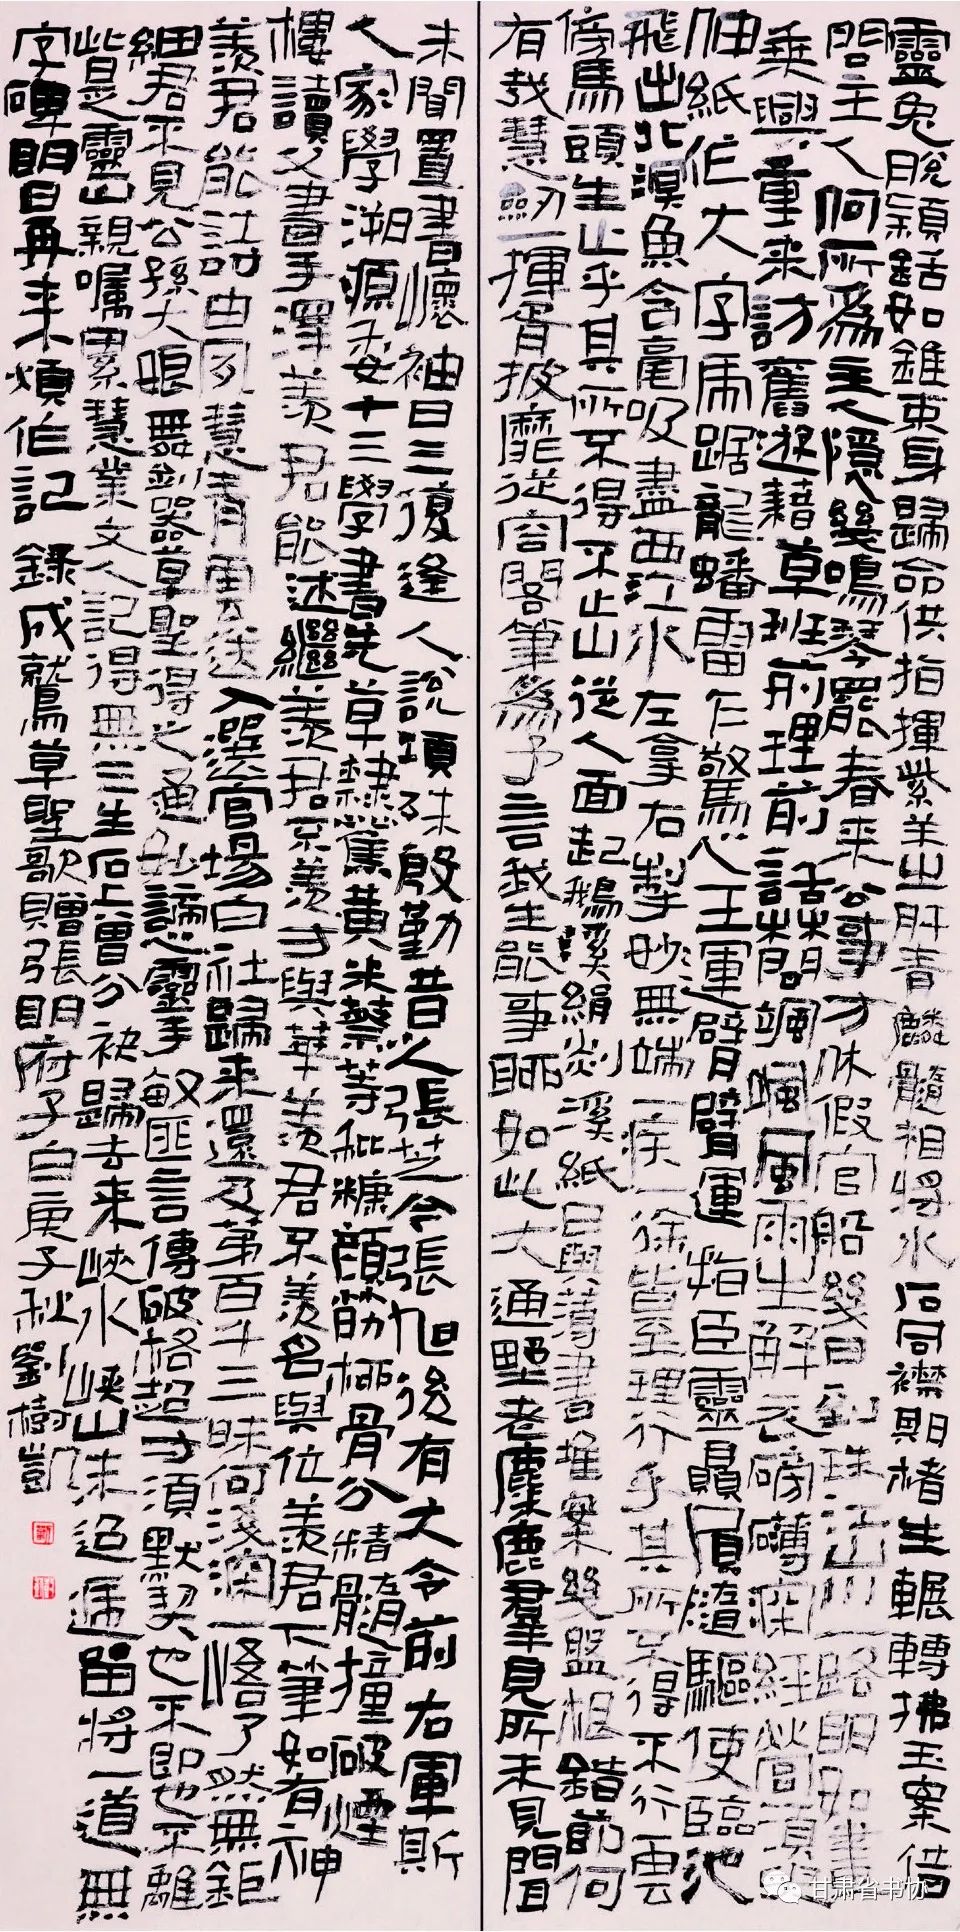 靈兔脫穎銛如錐束身歸命供指揮紫羊出肝青麟髓相將水石同襟期楮生輾轉拂玉案借
問主人何所為主人隱幾鳴琴罷春來公事方休假官船幾日到珠江江山一路明如畫
乘興重來訪舊遊藉草班荊理前話松間颯颯風雨生解衣磅礴深經營頂
伸紙作大字虎踞龍蟠雷乍驚人王運臂臂運指臣靈贔屭隨驅使臨池
飛出北溟魚含毫吸盡西江水左拿右掣妙無端一疾一徐皆至理行乎其所不得不行雲
傍馬頭生止乎其所不得不止山從人面起鵝溪絹剡溪紙日與薄書堆案幾盤根錯節何
有哉慧劒一揮胥披靡從容閣筆為予言我生能事聊如此大通野老麋鹿群見所未見聞
未聞置書懷袖日三復逢人說項殊殷勤昔人張芝今張旭後有大令前右軍斯
人家學溯源委十三學書先草隸薰黃米蔡等秕糠顏筋柳骨分精髓撞破煙
樓讀父書手澤羨君能述繼羨君不羨才與華羨君不羨名與位羨君下筆如有神
羨君能詁由夙慧青雲送入選官場白社歸來還及第百廿三昧何淺深一悟了然無鉅
細君不見公孫大娘舞劍器草聖得之通妙諦心靈手敏匪言傳破格超才須默契也不即也不離
此是靈山親囑累慧業文人記得無三生石上曾分袂歸去來峽水峽山未迢遞留將一道無
字碑明日再來煩作記 錄成鷲草聖歌贈張明府子白庚子秋劉樹凱
甘肃省书协